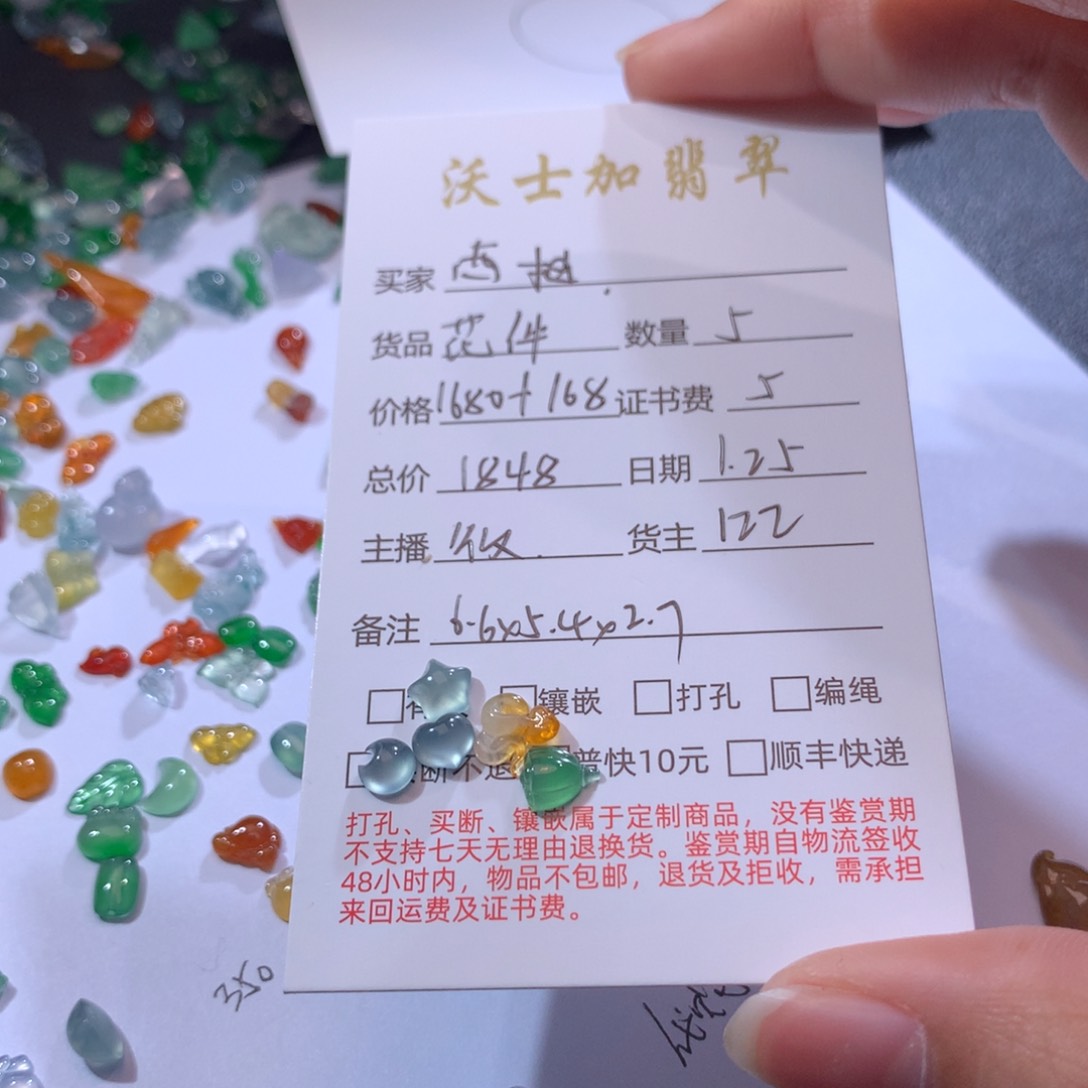 沃士加翡翠
买家
货品 花件 数量 5
价格 1680+168 证书费 5
总价 1848 日期 1.25
主播 货主 122
备注 6.6x5.4x2.7
镶嵌 打孔 编绳
断不退 普快10元 顺丰快递
打孔、买断、镶嵌属于定制商品，没有鉴赏期
不支持七天无理由退换货。鉴赏期自物流签收
48小时内，物品不包邮，退货及拒收，需承担
来回运费及证书费。
350